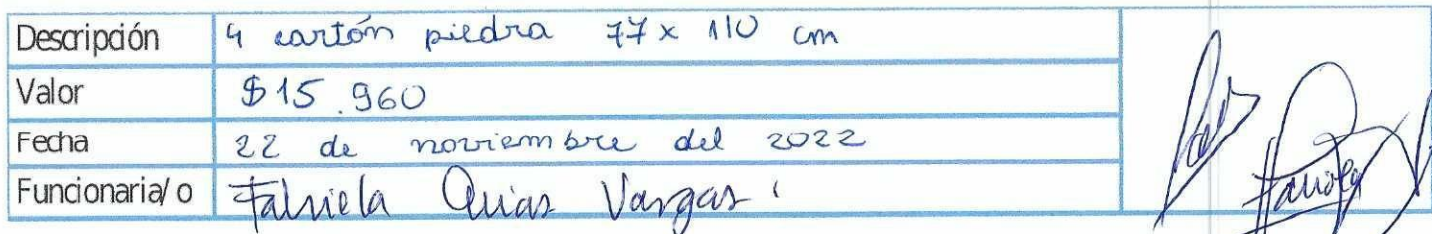 Descripción 4 cartón piedra 77 x 110 cm
Valor $15.960
Fecha 22 de noviembre del 2022
Funcionaria/o Vargas